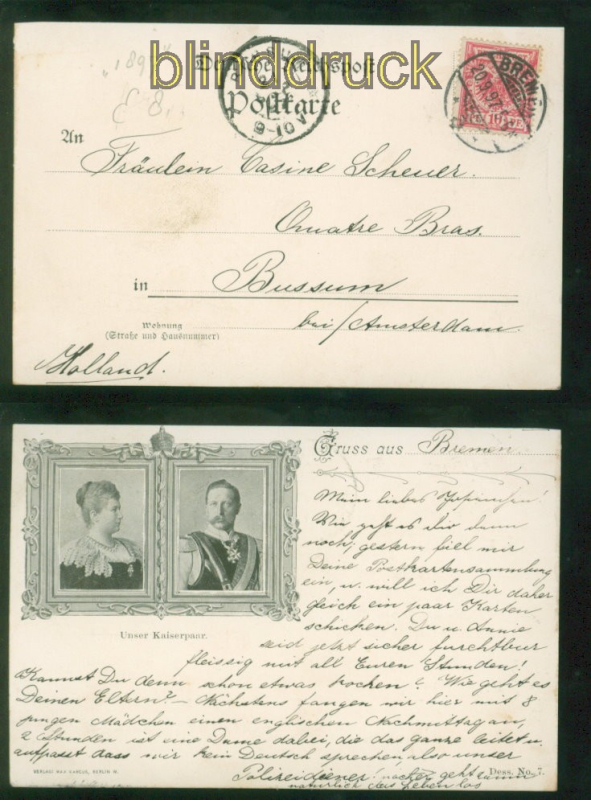 blinddruck
Deutsche Reichspost
Postkarte
„1897“
£ 8.
BUSSUM
9-10V
BREMEN
20.9.97
An
Fräulein Casine Scheuer.
Quatre Bras.
in Bussum
Wohnung
(Straße und Hausnummer)
bei/Amsterdam.
Holland.
Gruss aus Bremen.
Mein liebes
Wie geht es Dir denn
noch, gestern fiel mir
Deine Postkartensammlung
ein, u. will ich Dir daher
gleich ein paar Karten
schicken. Du u Annie
seid jetzt sicher furchtbar
fleissig mit all Euren Stunden!
Kannst Du denn schon etwas kochen? Wie geht es
Deinen Eltern? – Nächstens fangen wir hier mit 8
jungen Mädchen einen englischen Nachmittag an,
2 Stunden ist eine Dame dabei, die das ganze leitet u.
aufpasst dass wir kein Deutsch sprechen, also unser
Polizeidiener! nachher geht dann
natürlich das Leben los
Unser Kaiserpaar.
VERLAG MAX MARCUS, BERLIN W.
Dess. No. 7.